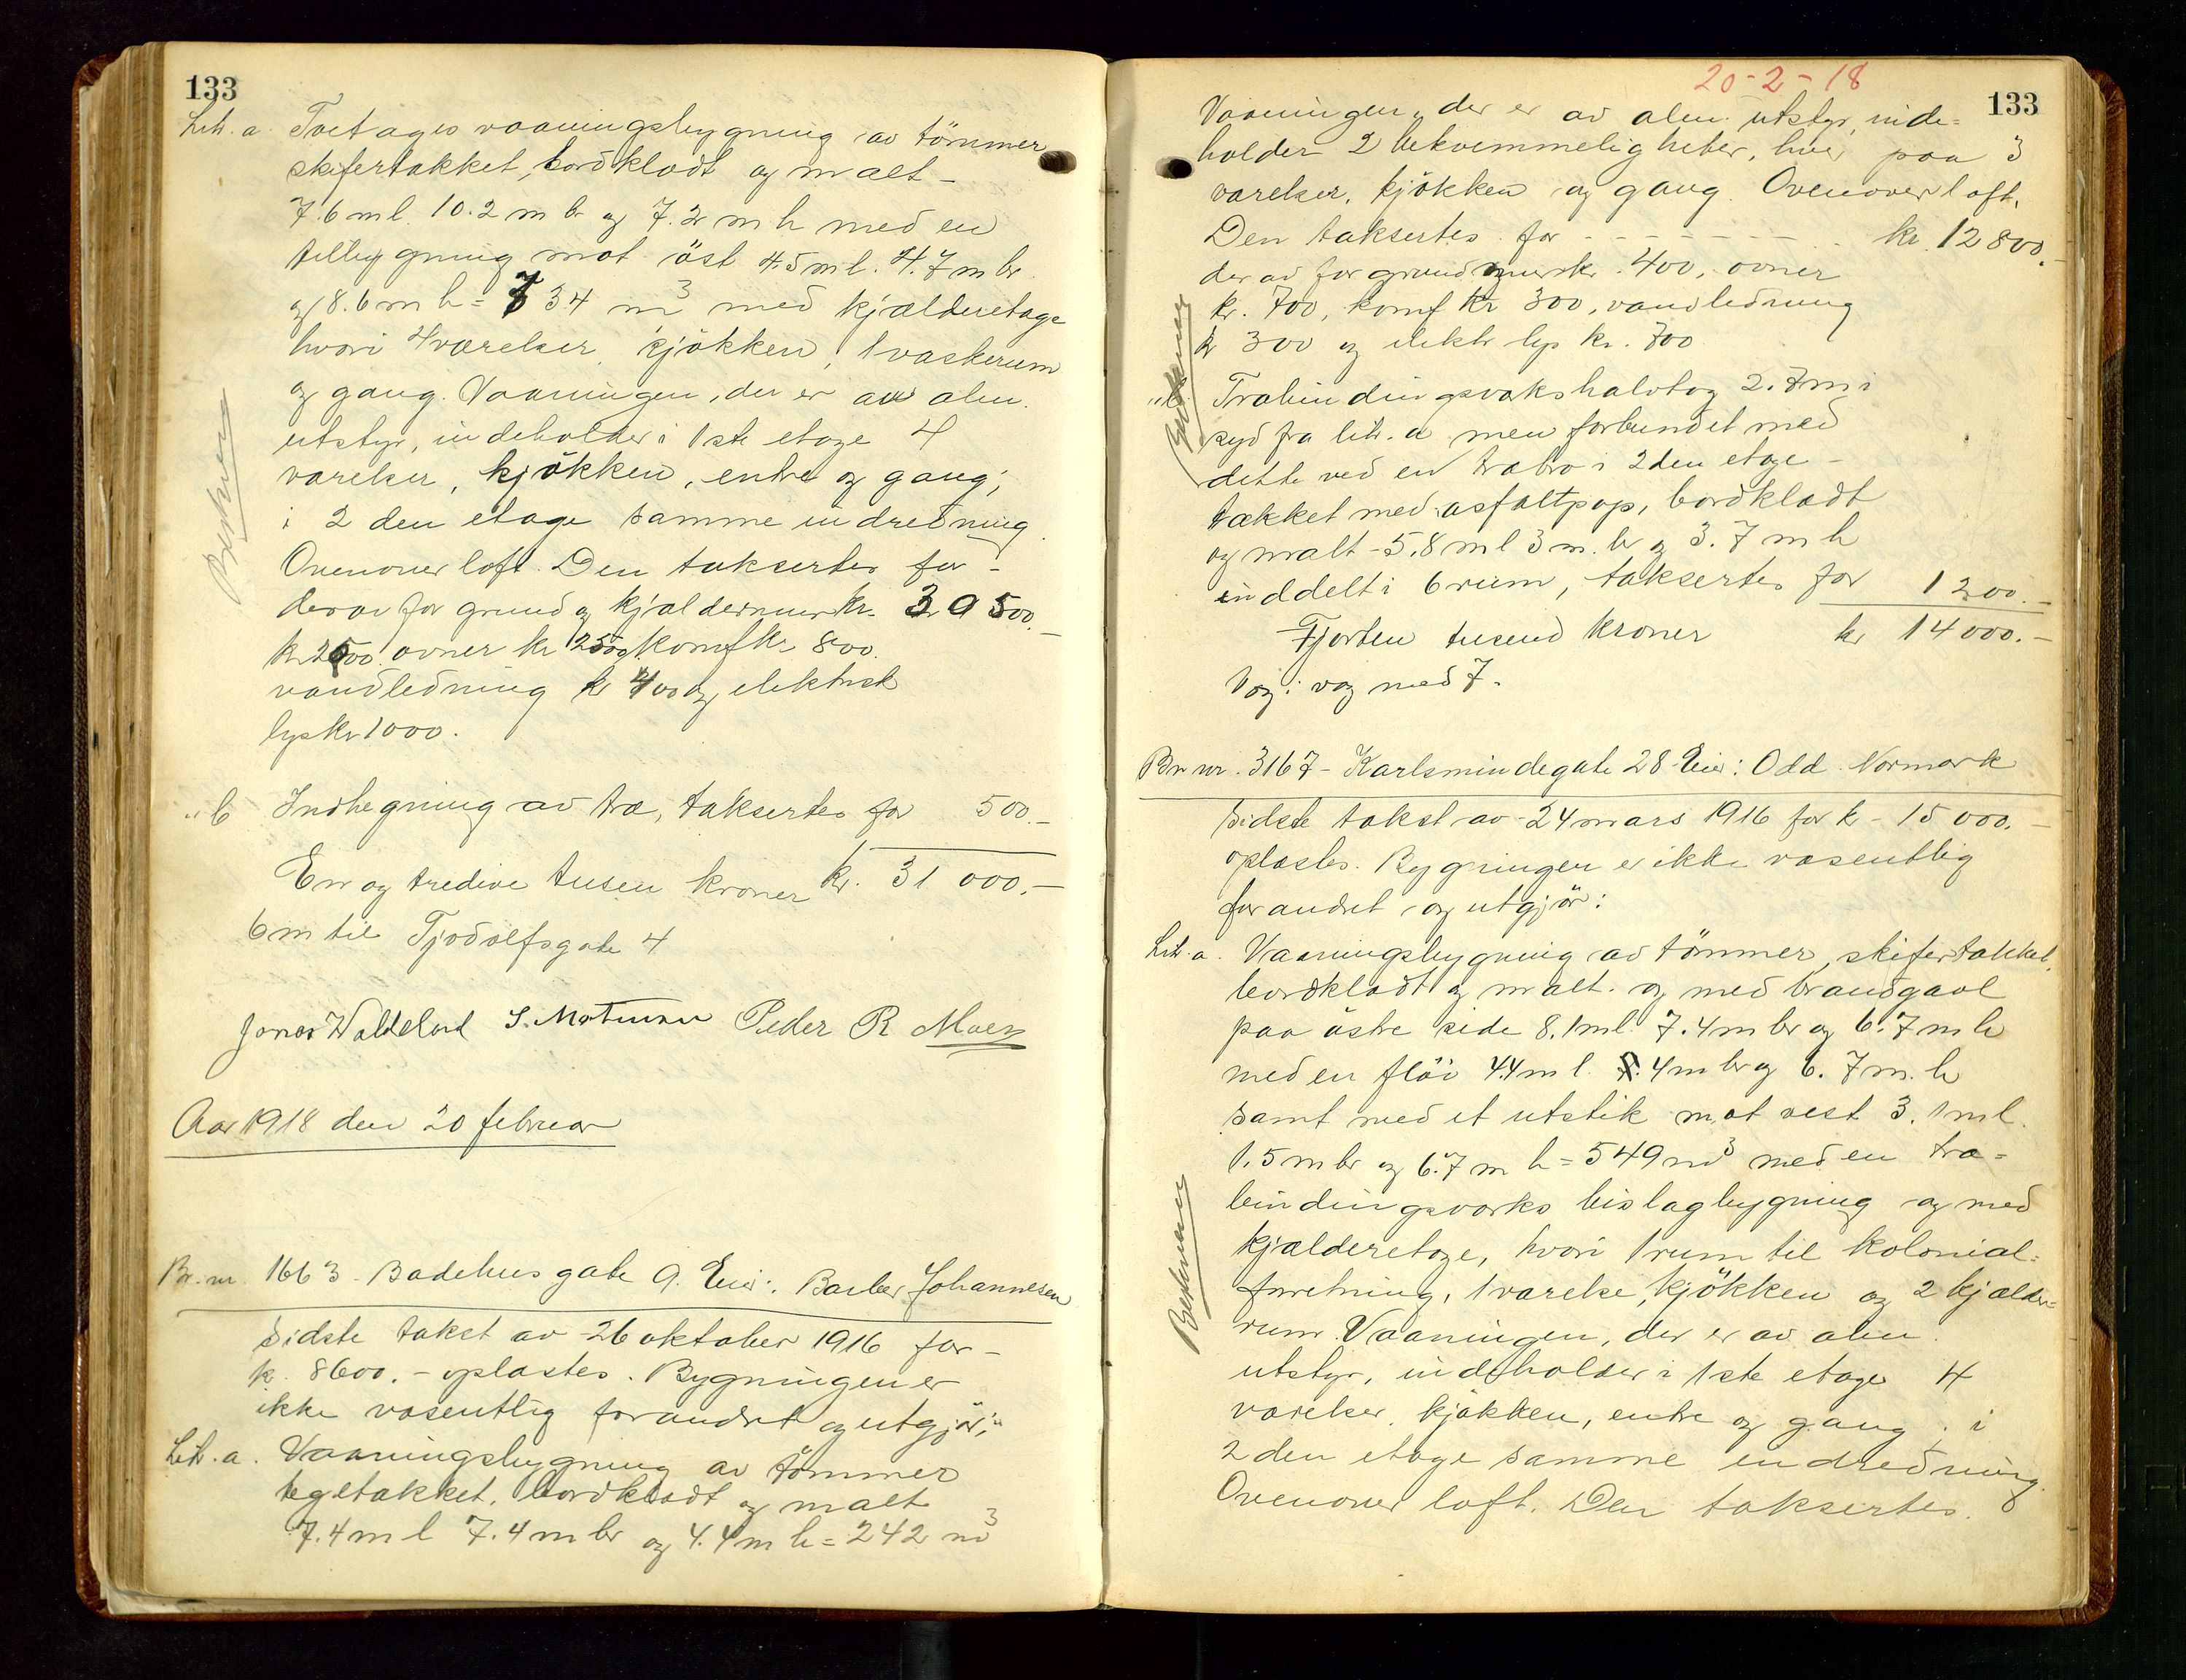 133
Lit. a. Toetages vaaningsbygning av tömmer
skifertakket, bordklædt og malt -
7.6 m l. 10.2 m br og 7.2 m h med en
tilbygning mot öst 4.5 m l. 4.7 m br.
og 8.6 m h = 734 m3 med kjælderetage
hvori 4 værelser, kjökken, 1 vaskerum
og gang. Vaaningen, der er av alm.
utstyr, indeholder i 1ste etage 4
værelser, kjökken, entre og gang;
i 2den etage samme indredning.
Ovenover loft. Den taksertes for -
derav for grund og kjældermur kr. 30500.-
kr 2500 ovner kr 1250 og komf kr 800.
vandledning kr 400 og elektrisk
lys kr 1000.
Beskrevet
" b Indhegning av træ, taksertes for 500.-
En og tredive tusen kroner kr. 31 000.-
6 m til Tjodolfsgate 4
Jonas Waldeland S. Matunan Peder R Moen
Aar 1918 den 20 februar
Br. nr. 1663 - Badehusgate 9. Eier: Barber Johannesen
Sidste takst av 26 oktober 1916 for -
kr. 8600.- oplæstes. Bygningen er
ikke væsentlig forandret og utgjör:
Lit. a. Vaaningsbygning av tömmer
tegltækket, bordklædt og malt
7.4 m l 7.4 m br og 4.4 m h = 242 m3
20-2-18
133
Vaaningen, der er av alm. utstyr, inde=
holder 2 bekvemmeligheter, hver paa 3
værelser, kjökken og gang. Ovenover loft.
Den taksertes for - - - - - - - kr. 12 800.-
derav for grundmur kr. 400, ovner
kr. 700, komf kr 300, vandledning
kr 300 og elektr lys kr. 700
" b. Træbindingsværks halvtag 2.7 m i
syd fra lit. a men forbundet med
dette ved en træbro i 2den etage -
tækket med asfaltpap, bordklædt
og malt - 5.8 m l 3 m. br og 3.7 m h
inddelt i 6 rum, taksertes for 1200.-
Fjorten tusend kroner kr 14000.-
Væg i væg med 7.
Br nr. 3167 - Karlsmindegate 28 Eier: Odd Normark
Sidste takst av 24 mars 1916 for kr - 15 000.-
oplæstes. Bygningen er ikke væsentlig
forandret og utgjör:
Lit. a. Vaaningsbygning av tömmer, skifertækket,
bordklædt og malt. og med brandgavl
paa östre side 8.1 m l. 7.4 m br og 6.7 m h
med en flöi 4.4 m l. 7.4 m br og 6.7 m. h
samt med et utstik mot vest 3.1 m l.
1.5 m br og 6.7 m h = 549 m3 med en træ=
bindingsværks bislagbygning og med
kjælderetage, hvori 1 rum til kolonial=
forretning, 1 værelse, kjökken og 2 kjælder=
rum. Vaaningen, der er av alm.
utstyr, indeholder i 1ste etage 4
værelser, kjökken, entre og gang; i
2den etage samme indredning.
Ovenover loft. Den taksertes.
Beskrevet